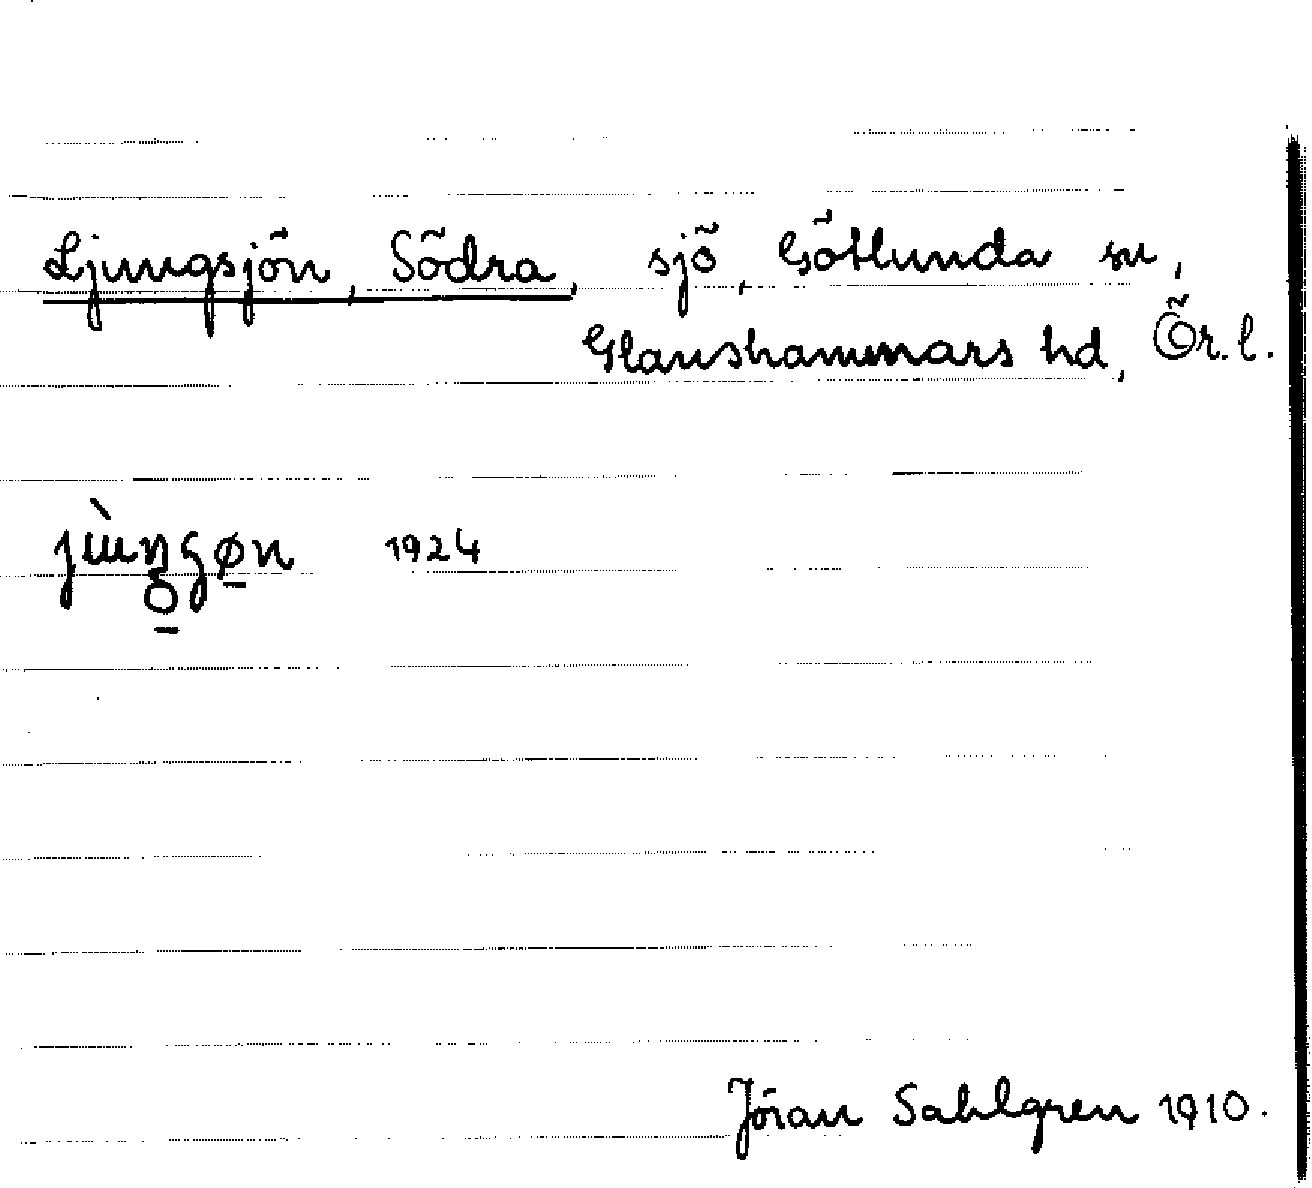 Ljungsjön, Södra, sjö, Götlunda sn,
Glanshammars hd, Ör. l.
1924
Jöran Sahlgren 1910.